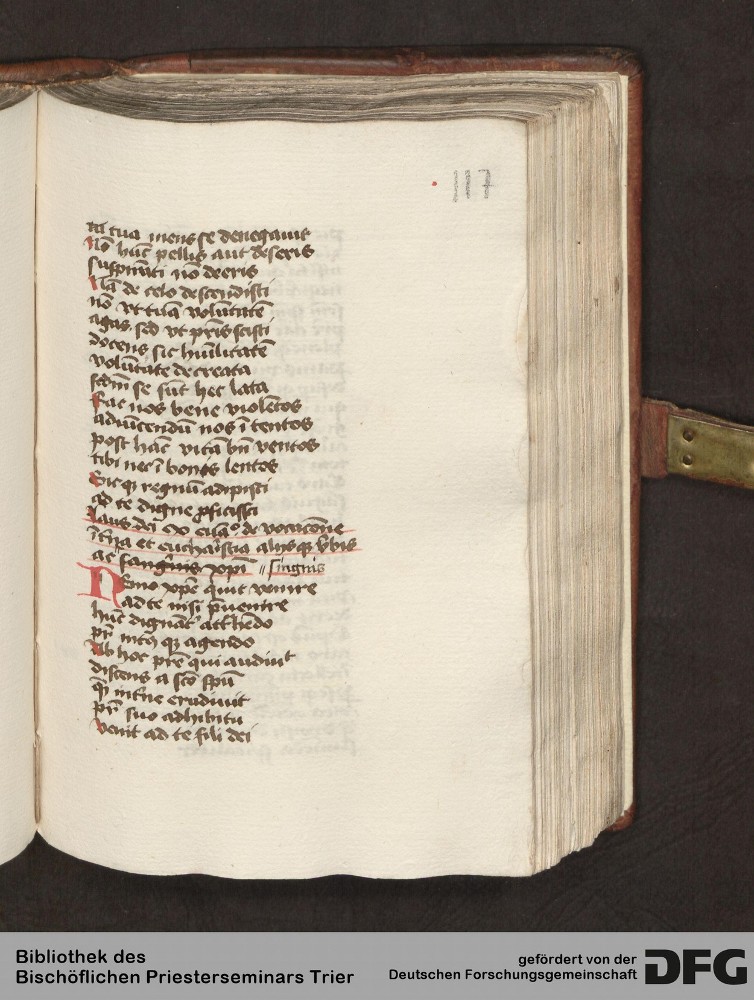 117
tua mens se denegavit
hūc pellis aut deseris
suspirāti nō deeris
de celo descendisti
nō vt tuā volūtatē
agas sed vt pr̄is scisti
docens sic hūilitatē
volūtate decreata
se sūt hec lata
Fac nos bene violētos
nos ī tentos
post hāc vitā bn̄ ventos
tibi nec ī bonis lentos
Sicq regnū adipisci
ad te digne ꝓficisci
Laus dei ex de vocacōne
et eucharistia alijsq v̄bis
ac sanguinis xp̄i // singnis
Nemo xp̄e quit venire
ad te nisi p̄uenire
hūc
agendo
Ab hoc pr̄e qui audiūt
discens a scō spū
int̄ne erudiuit
pr̄ suo adhibitu
venit ad te fili dei
Bibliothek des
Bischöflichen Priesterseminars Trier
gefördert von der
Deutschen Forschungsgemeinschaft
DFG